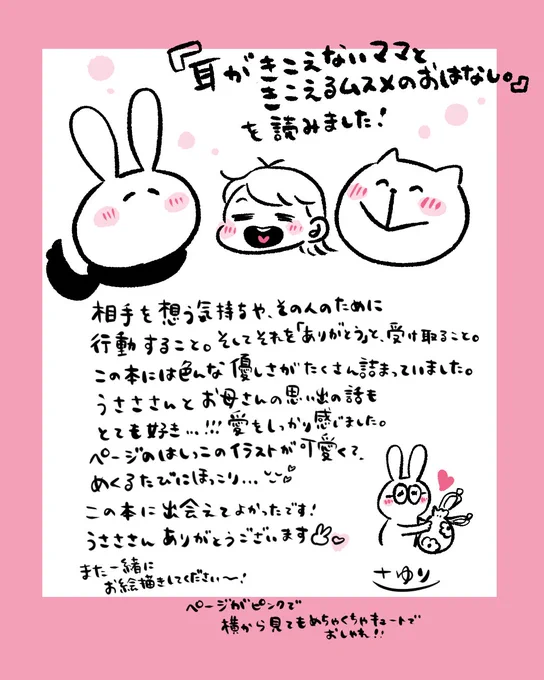 『耳がきこえないママと
きこえるムスメのおはなし。』
を読みました!
相手を想う気持ちや、その人のために
行動すること。そしてそれを「ありがとう」と、受け取ること。
この本には色んな優しさがたくさん詰まっていました。
うさささんとお母さんの思い出の話も
とても好き…!!!愛をしっかり感じました。
ページのはしっこのイラストが可愛くて、
めくるたびにほっこり…
この本に出会えてよかったです!
うさささんありがとうございます
また一緒に
お絵描きしてください〜!
さゆり
ページがピンクで
横から見てもめちゃくちゃキュートで
おしゃれ!!